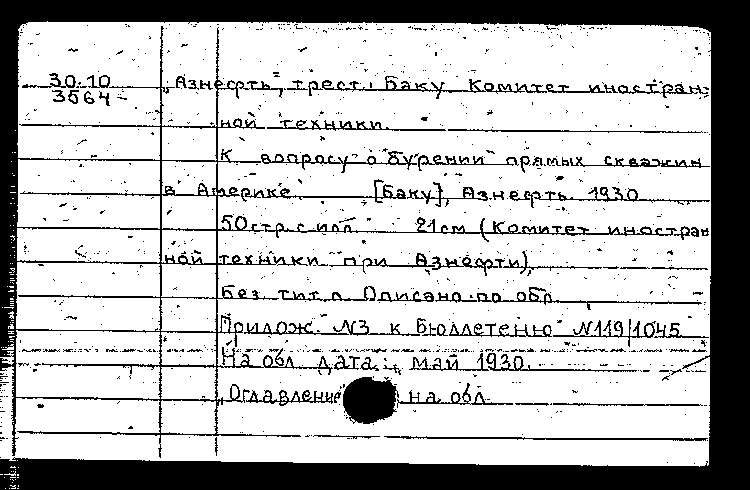 30.10
3564-
„Азнефть", трест. Баку. Комитет иностран-
ной техники.
К вопросу о бурении прямых скважин
в Америке. [Баку], Азнефть. 1930
50стр. с илл. 21см (Комитет иностран
ной техники при Азнефти).
Без тит л. Описано по обл.
Прилож. №3 к Бюллетеню №119/1045
На обл. дата: май 1930.
Оглавление на обл.